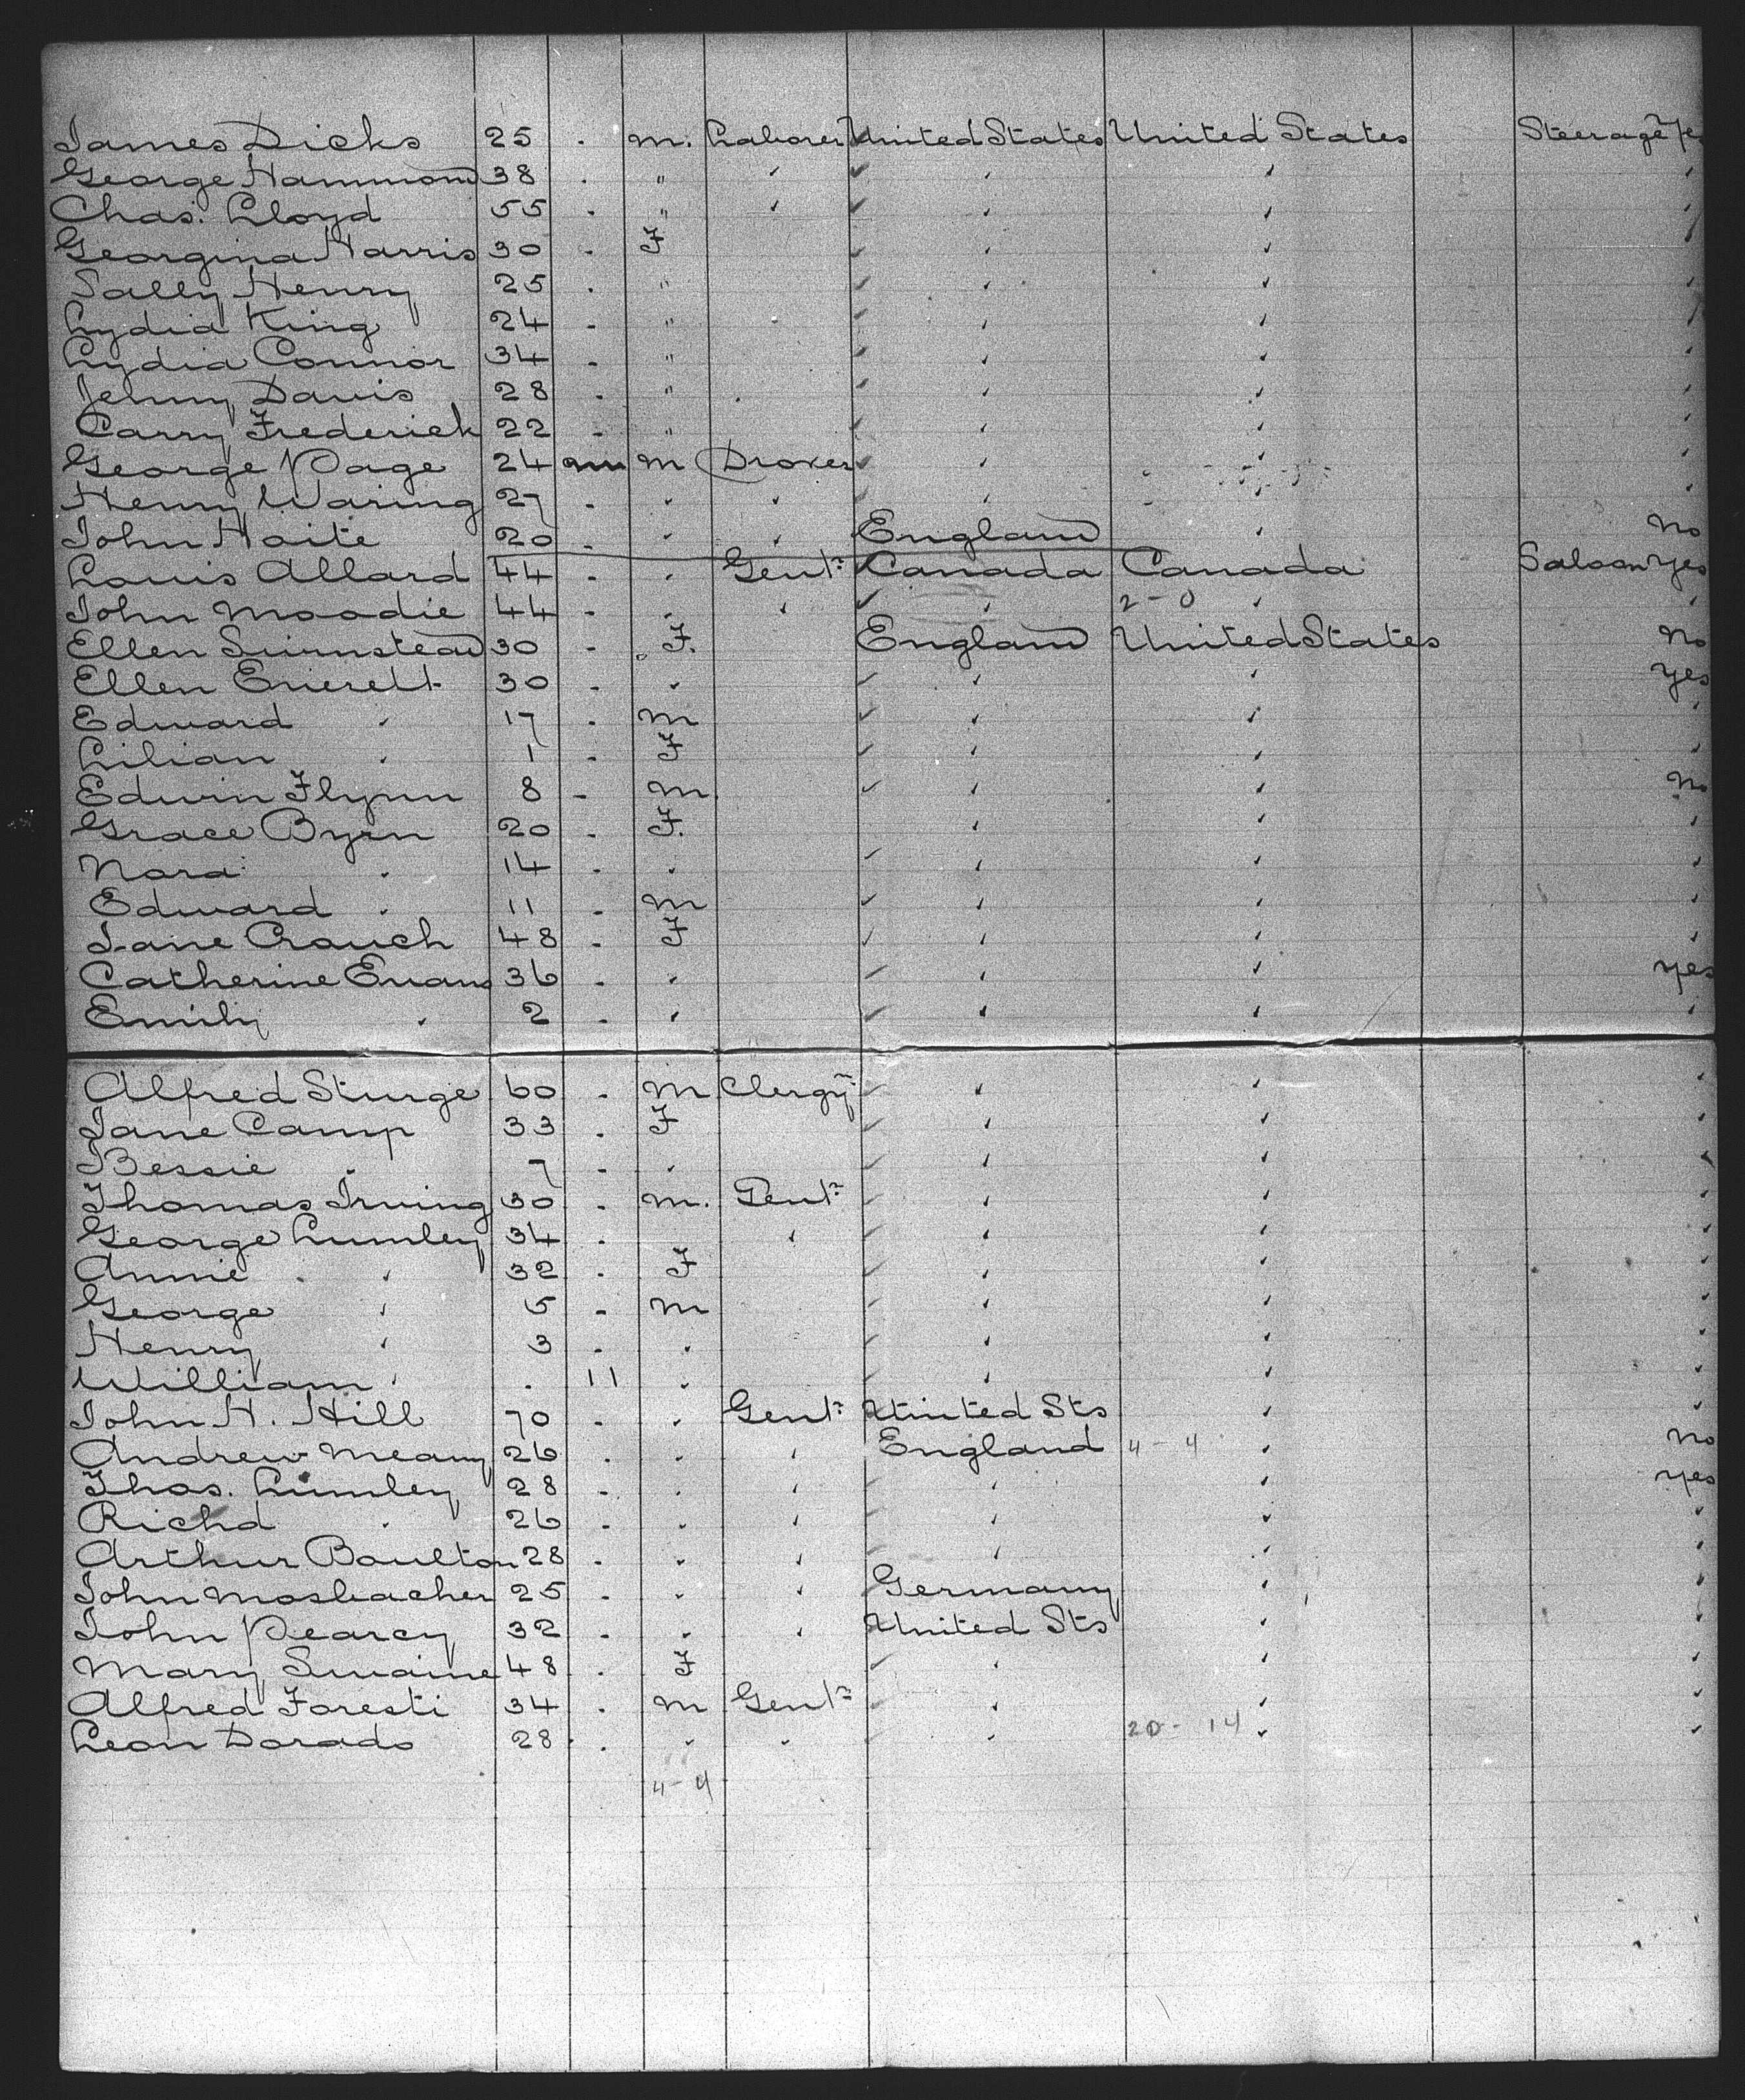 James Dicks 25 . m. Laborer United States United States Steerage
George Hammond 38 . " ✓ ✓ ✓ ✓
Chas. Lloyd 55 . " ✓ ✓ ✓ ✓
Georgina Harris 30 . F ✓ ✓ ✓
Sally Henry 25 . " ✓ ✓ ✓
Lydia King 24 . " ✓ ✓ ✓
Lydia Connor 34 . " ✓ ✓ ✓
Jenny Davis 28 . " ✓ ✓ ✓
Carry Frederick 22 . " ✓ ✓ ✓
George Page 24 m Drover ✓ ✓
Henry Waring 27 . ✓ ✓ ✓ ✓
John Haite 20 . ✓ ✓ England ✓ No
Louis Allard 44 . ✓ Gent: Canada Canada Saloon yes
John Moodie 44 . ✓ ✓ ✓ 2-0 ✓ ✓
Ellen 30 . F. England United States No
Ellen Everett 30 . ✓ ✓ ✓ yes
Edward ✓ 17 . m ✓ ✓ ✓
Lilian ✓ 1 . F ✓ ✓ ✓
Edwin Flynn 8 . m ✓ ✓ No
Grace Byrn 20 . F. ✓ ✓ ✓
Nora ✓ 14 . ✓ ✓ ✓ ✓
Edward ✓ 11 . m ✓ ✓ ✓
Jane Crouch 48 . F ✓ ✓ ✓
Catherine Evans 36 . ✓ ✓ ✓ yes
Emily ✓ 2 . ✓ ✓ ✓ ✓
Alfred Sturge 60 . m Clergy: ✓ ✓ ✓
Jane Camp 33 . F ✓ ✓ ✓
Bessie ✓ 7 . ✓ ✓ ✓ ✓
Thomas Irving 30 . m. Gent: ✓ ✓ ✓
George Lumley 34 . ✓ ✓ ✓ ✓
Annie ✓ 32 . F ✓ ✓ ✓
George ✓ 5 . m ✓ ✓ ✓
Henry ✓ 3 . ✓ ✓ ✓ ✓
William ✓ . 11 ✓ ✓ ✓ ✓
John H. Hill 70 . ✓ Gent: United Sts ✓ ✓
Andrew Meany 26 . ✓ ✓ England 4-4 ✓ No
Thos. Lumley 28 . ✓ ✓ ✓ ✓ yes
Richd ✓ 26 . ✓ ✓ ✓ ✓ ✓
Arthur Boulton 28 . ✓ ✓ ✓ ✓ ✓
John Mosbacher 25 . ✓ ✓ Germany ✓ ✓
John Pearcy 32 . ✓ ✓ United Sts ✓ ✓
Mary Swaine 48 . F ✓ ✓ ✓
Alfred Foresti 34 . m Gent: ✓ ✓ ✓
Leon Dorado 28 . ✓ ✓ ✓ 20-14 ✓ ✓
4-4